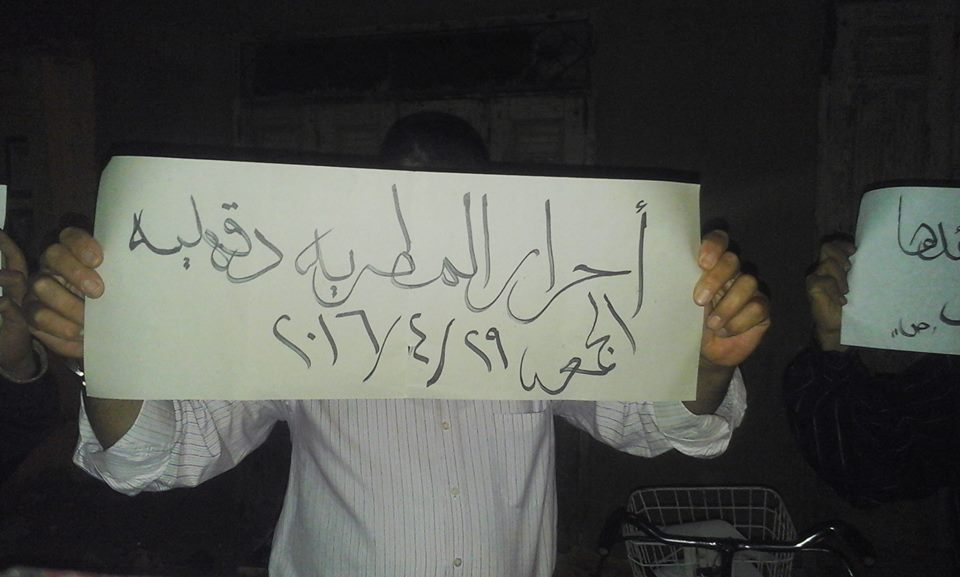 أحرار المطريه دقهليه
الجمعه ٢٩/٤/٢٠١٦